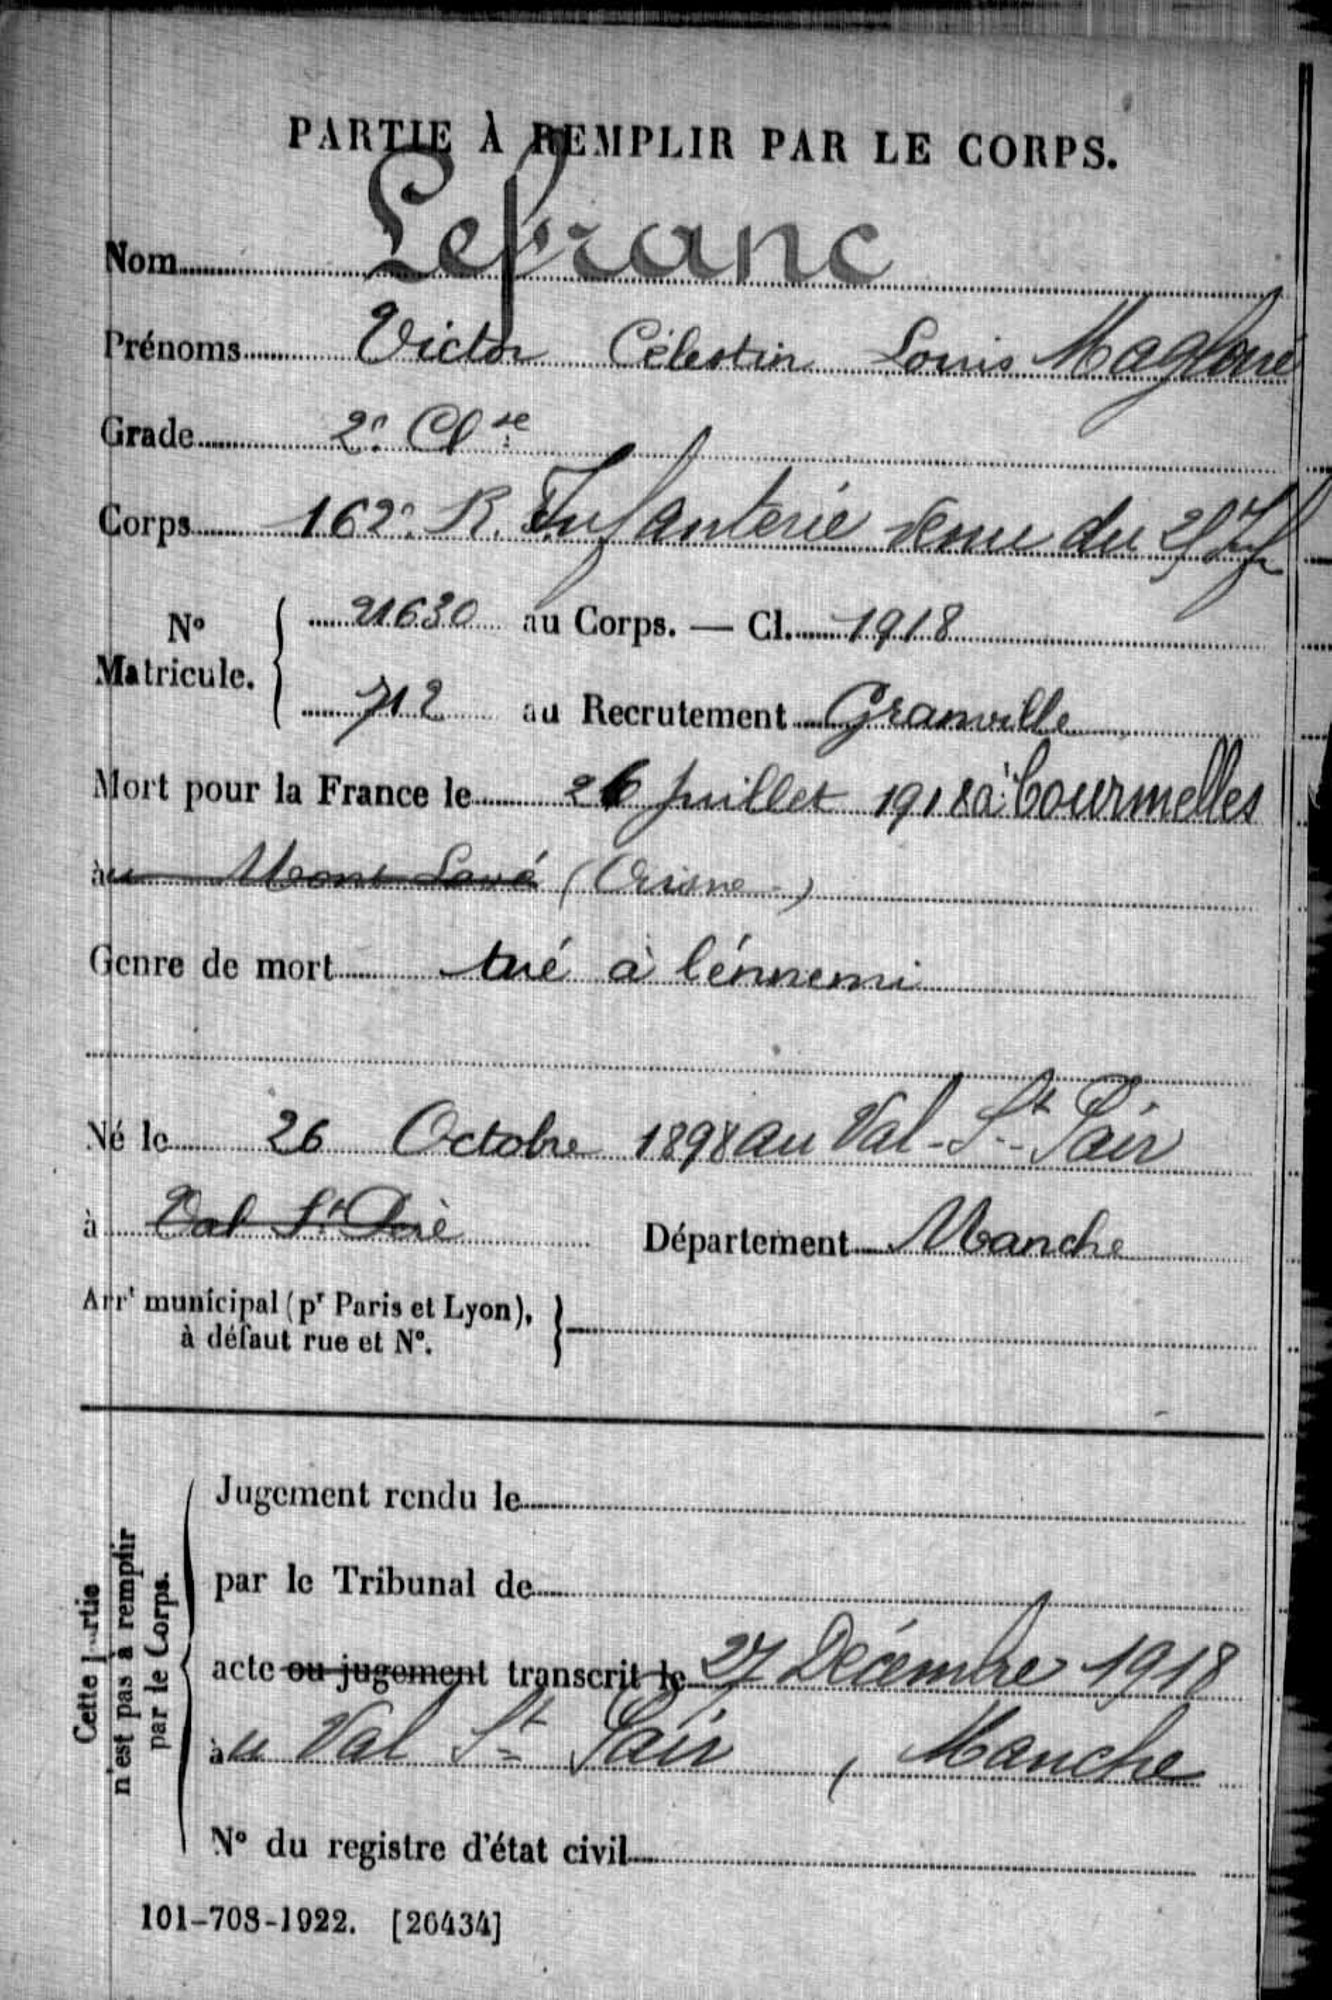 PARTIE À REMPLIR PAR LE CORPS.
Nom Lefranc
Prénoms Victor Célestin Louis Magloire
Grade 2e Cl se
Corps 162e R. Infanterie venu du
No Matricule. 21630 au Corps. — Cl. 1918
712 au Recrutement Granville
Mort pour la France le 26 Juillet 1918 à Courmelles
àu Mont Lavé (Aisne)
Genre de mort tué à l'énnemi
Né le 26 Octobre 1898 au Val-St-Pair
à Val St Père Département Manche
Arrt municipal (pr Paris et Lyon), à défaut rue et No.
Cette partie n'est pas à remplir par le Corps.
Jugement rendu le
par le Tribunal de
acte ou jugement transcrit le 27 Décembre 1918
àu Val St Pair, Manche
No du registre d'état civil
101-708-1922. [26434]